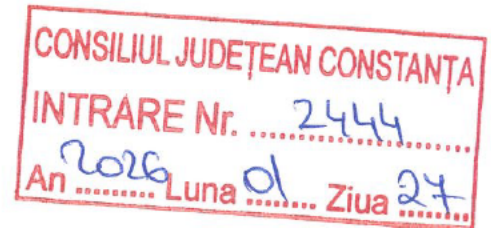 CONSILIUL JUDEȚEAN CONSTANȚA
INTRARE Nr. 2444
An 2026 Luna 01 Ziua 27